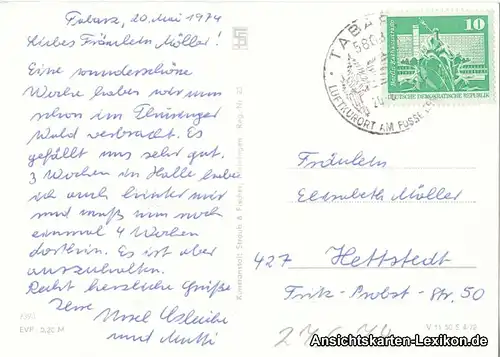 Tabarz, 20. Mai 1974
Liebes Fräulein Möller!
Eine wunderschöne
Woche haben wir nun
schon im Thüringer
Wald verbracht. Es
gefällt uns sehr gut.
3 Wochen in Halle habe
ich auch hinter mir
und muß nun noch
einmal 4 Wochen
dorthin. Es ist aber
auszuhalten.
Recht herzliche Grüße
Ihre
Ursel
und Mutti
EVP 0,20 M
TABARZ
LUFTKURORT AM FUSSE
10
DEUTSCHE DEMOKRATISCHE REPUBLIK
Fräulein
Elisabeth Möller
427 Hettstedt
Fritz-Probst-Str. 50
V 11 50 E 4/73
Ansichtskarten-Lexikon.de